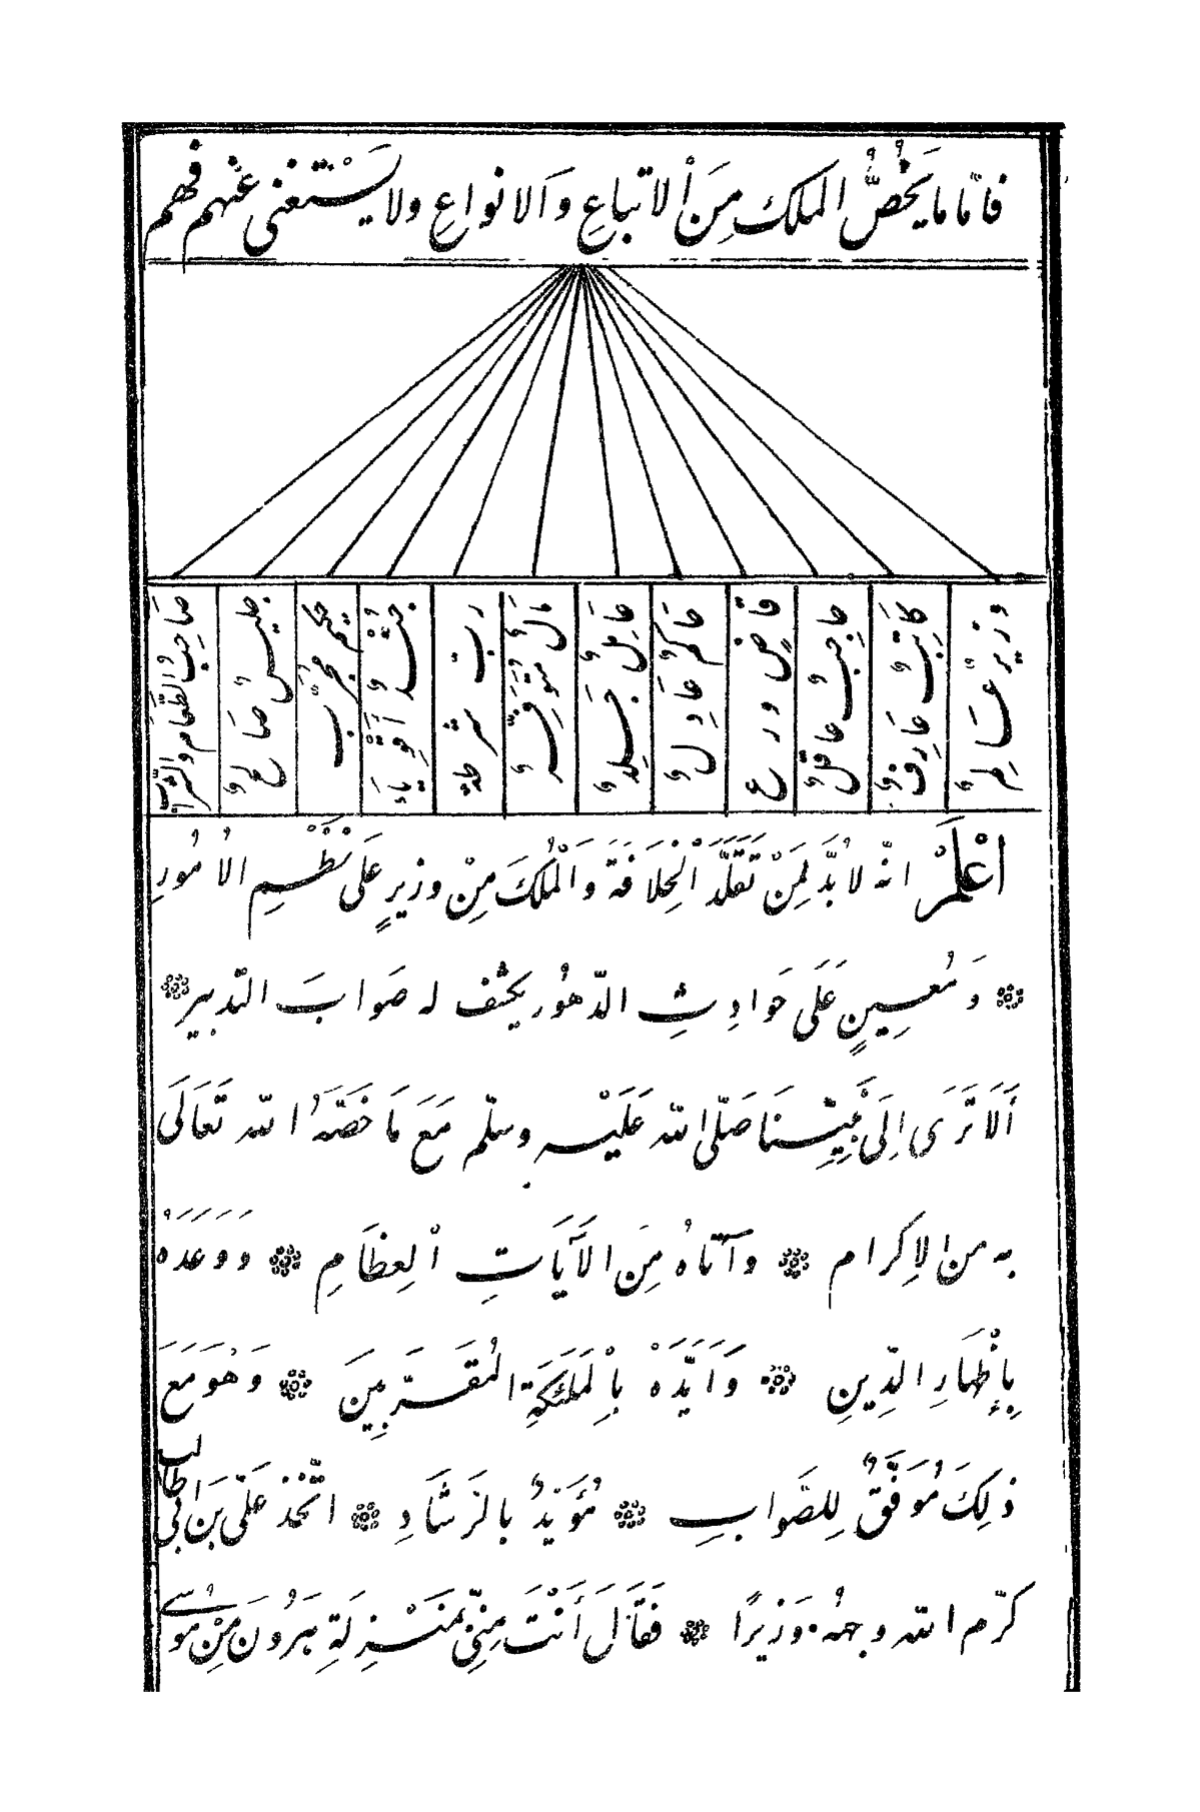 فامّا ما يَخُصُّ الملك مِنَ اْلاتباعِ وَالانواعِ ولا يَسْتَغنى عَنهم فهم
وزيرٌ عَالِمٌ
كَاتِبٌ عَارِفٌ
حاجِبٌ عاقلٌ
قاضٍ ورع
حَاكمٌ عَادِلٌ
عَامِلٌ جَلِدٌ
مَالٌ مُتَوَفِّرٌ
ربّ شرطة
جُنْدٌ أَقْوِيَاءَ
حكيم مُجَرّب
جليسٌ صَالحٌ
صَاحِبُ الطّعَام والشّرَاب
اعْلَمْ انّه لابُدَّ لِمَنْ تَقَلَّدَ الْخِلَافَةَ وَالْمُلكَ مِنْ وزيرٍ عَلَى نَظْمِ الاُمُورِ
۞ وَمُعِينٍ عَلَى حَوادِثِ الدّهوُر يكشف له صَوابَ التدبير ۞
أَلَا تَرَى اِلَى نَبِيِّنَا صَلّى الله عَلَيْه وسلّم مَعَ مَا خَصّهُ الله تَعَالَى
به من الاِكرام ۞ وآتَاهُ مِنَ الآيَاتِ اْلعِظَامِ ۞ وَوَعَدَهُ
بِإِظْهَارِ الدِّينِ ۞ وَاَيَّدَهُ بِاْلمَلَئكَةِ المُقَرّبِينَ ۞ وَهُوَ مَعَ
ذلِكَ مُوَفَّقٌ لِلصَّوابِ ۞ مُؤَيَّدٌ بالرَشَادِ ۞ اتّخَذَ عَلَىّ بَن اَبى طَالب
كرّم الله وجهُه وَزيرًا ۞ فَقَالَ أَنْتَ مِنِّى بمَنْزِلَةِ هَرُونَ مِنْ مُوسَى